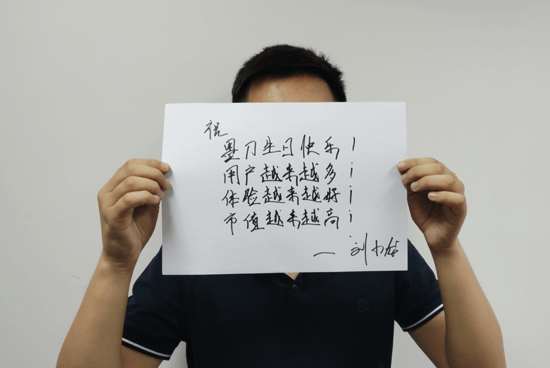 祝
墨刀生日快乐！
用户越来越多！
体验越来越好！
市值越来越高！
— 刘